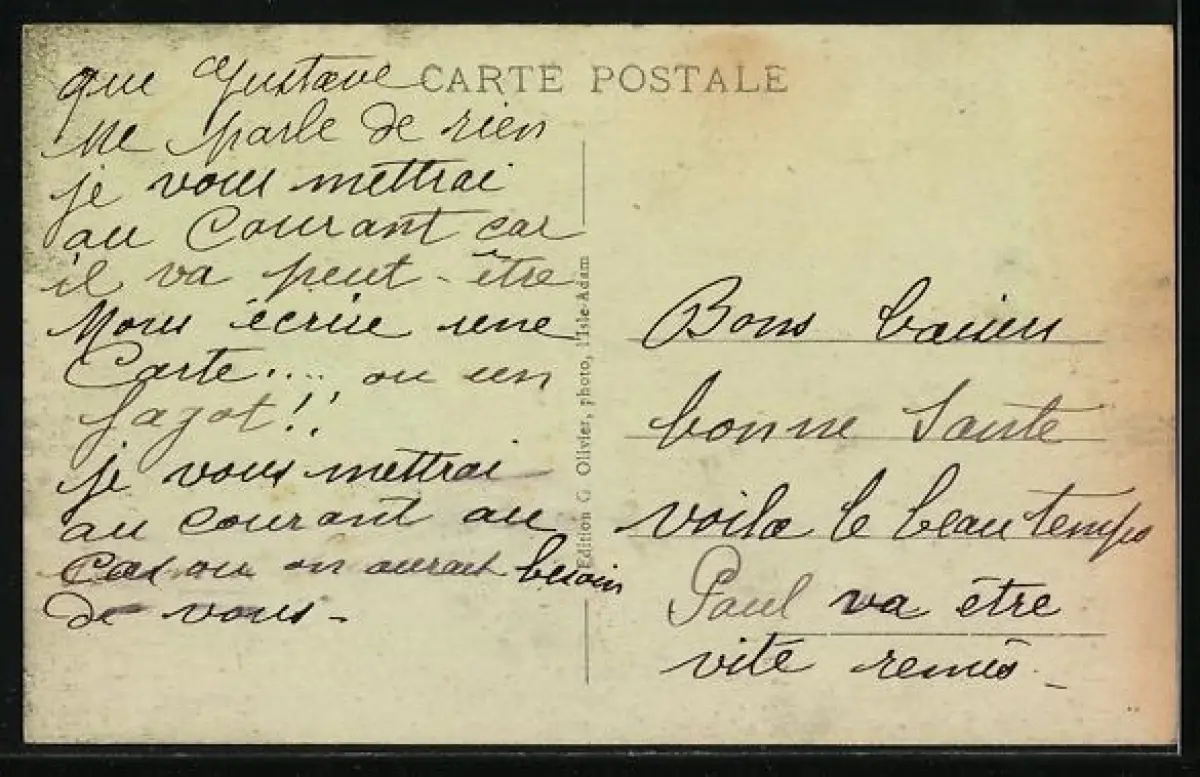 CARTE POSTALE
que Gustave
ne parle de rien
je vous mettrai
au Courant car
il va peut-être
Nous écrire une
Carte.... ou un
fagot!!
je vous mettrai
au courant au
Cas ou on aurait besoin
de vous -
Edition G. Olivier, photo, l'Isle-Adam
Bons baisers
bonne Sante
voila le beau temps
Paul va être
vite remis -